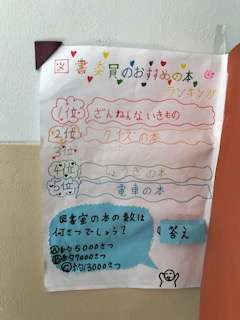 図書委員のおすすめの本
ランキング
1位 ざんねんないきもの
2位 クイズの本
3位
4位
5位 電車の本
図書室の本の数は
何さつでしょう?
答え
Ⓐ約5000さつ
Ⓑ約7000さつ
Ⓒ約13000さつ